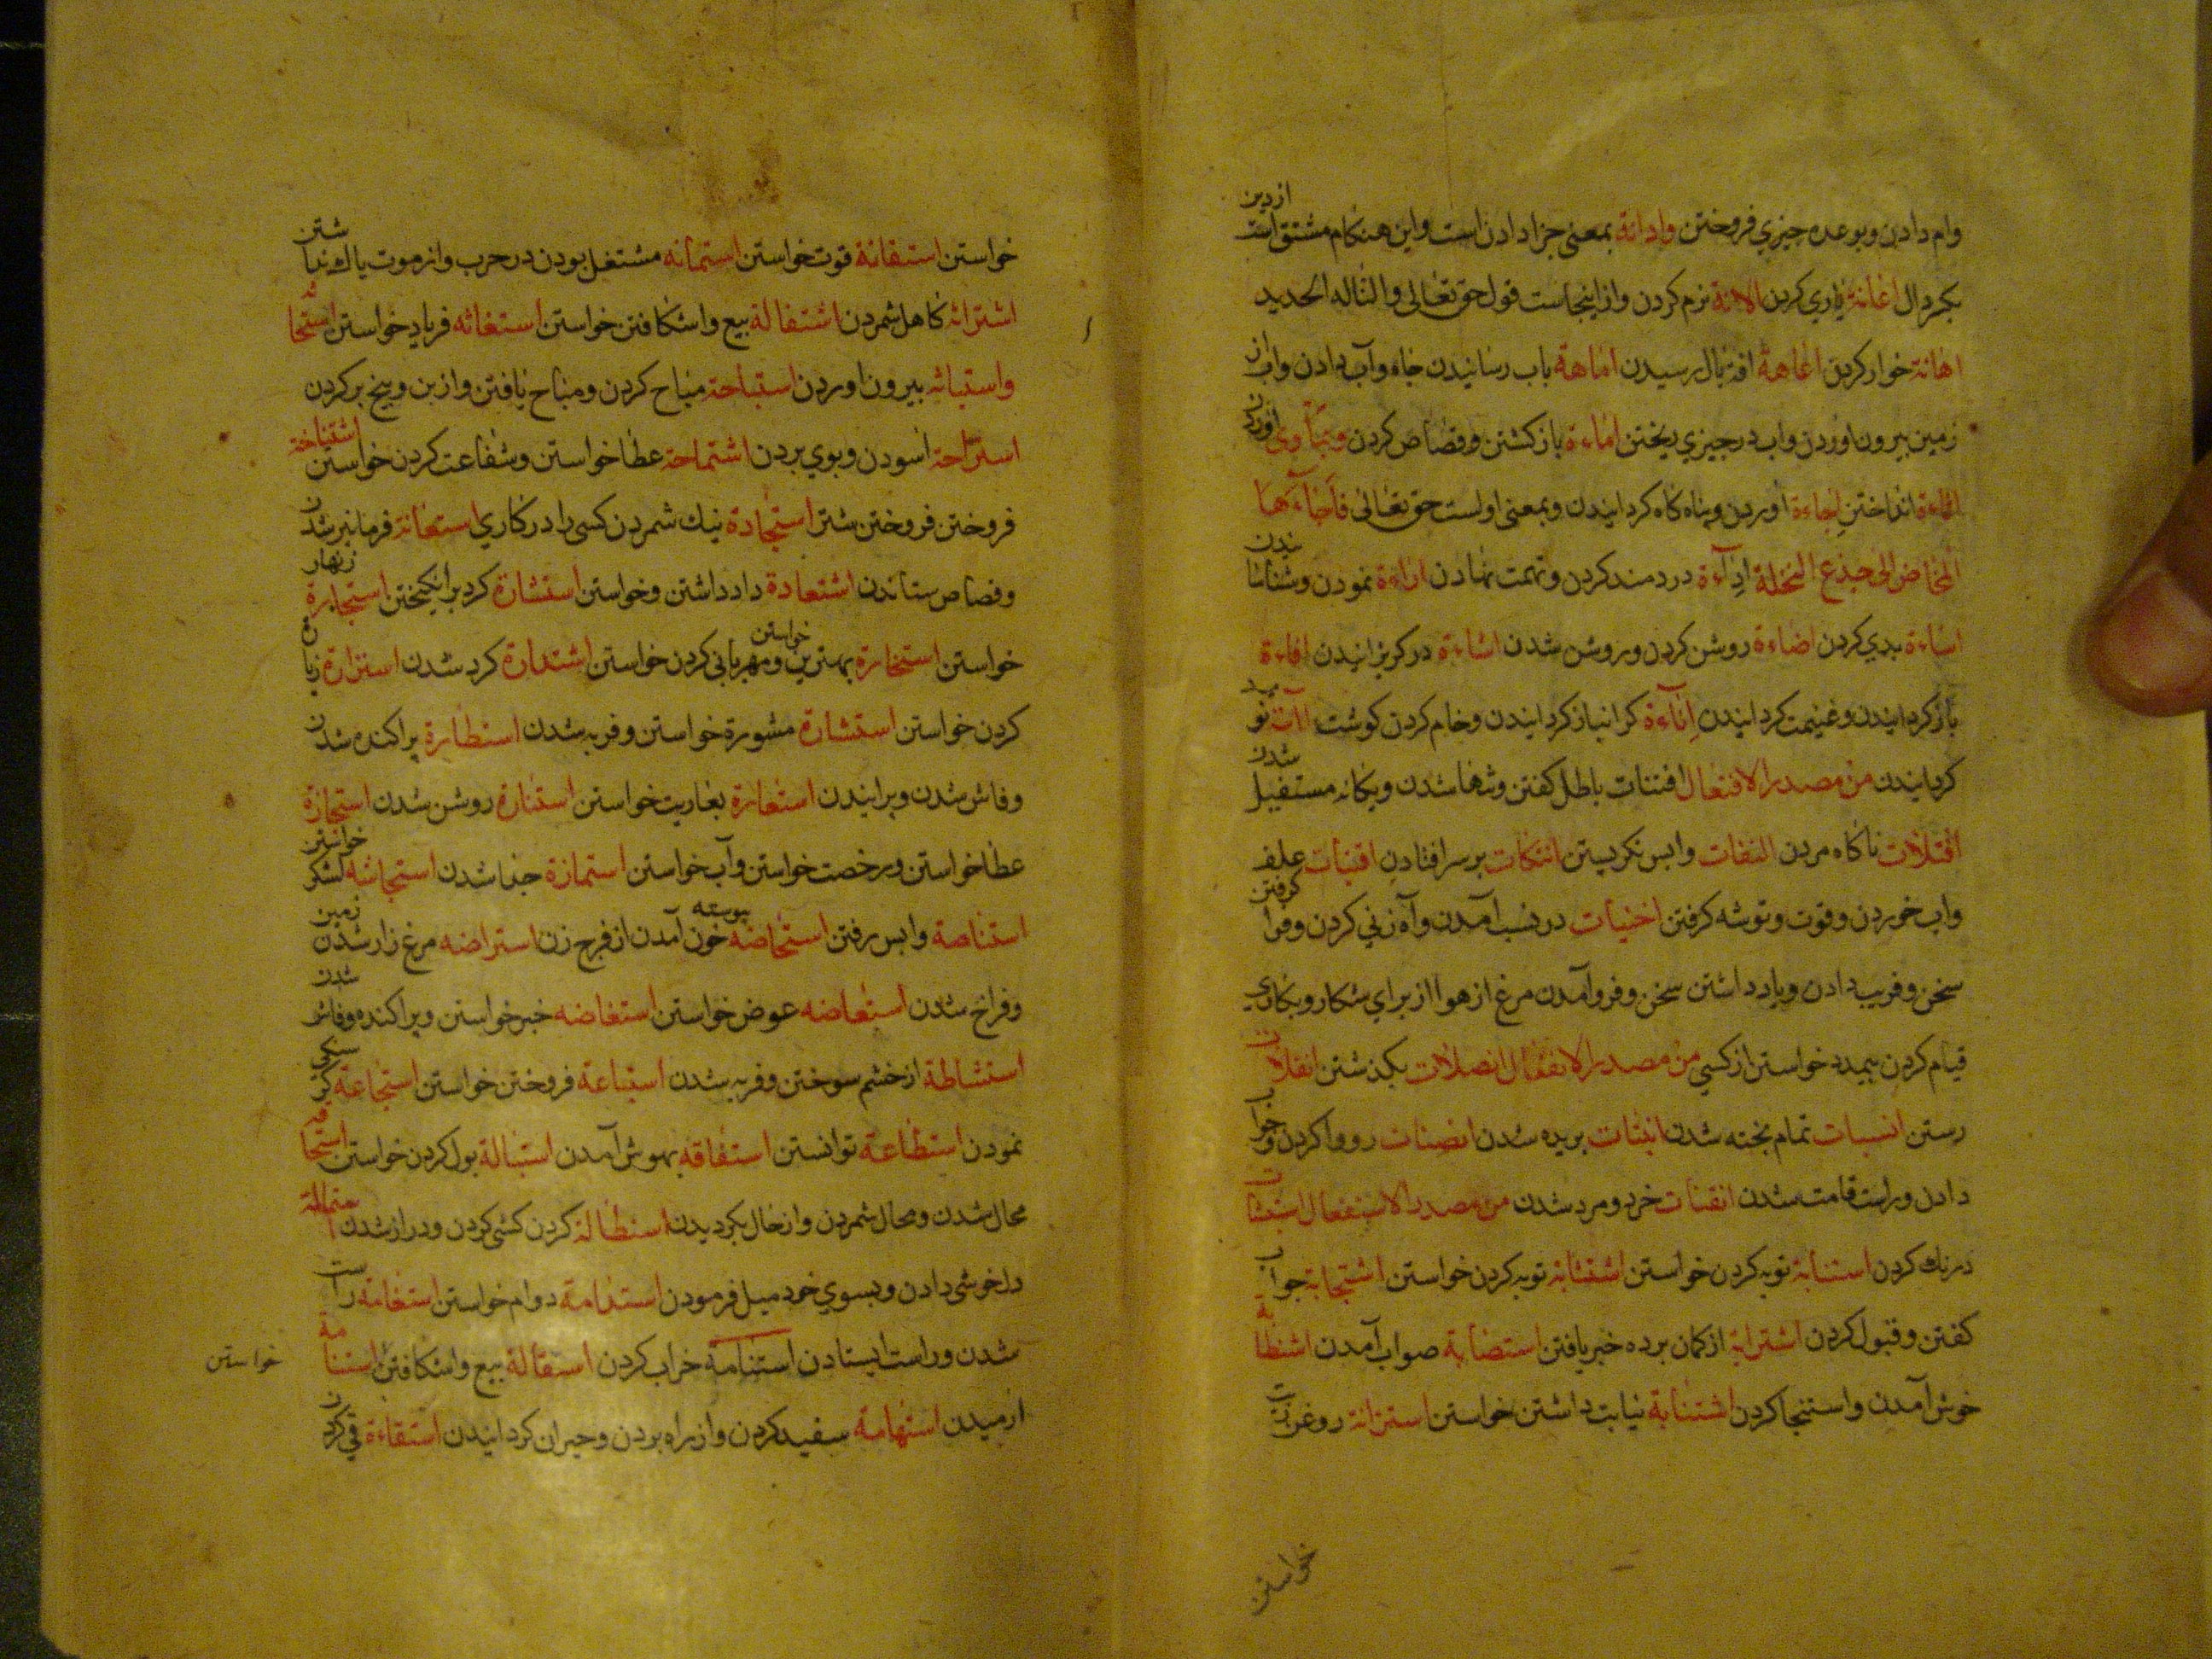 وام دادن وبوعده جيزي فروختن وادانة بمعنى جزا دادن است واين هنكام مشتق است از دين
بكردال اغانة ياري كردن الانة نرم كردن وازاينجاست قول حق تعالى والنا له الحديد
اهانة خوار كردن اعاهة افة بمال رسيدن اماهة باب رسانيدن جاه وآب دادن واب از
زمين بيرون اوردن واب در جيزي ريختن اماءة باز كشتن وقصاص كردن
اندا ختن اجاءة اوردن وبناه كاه كردانيدن وبمعنى اولست حق تعالى فاجآءها
المخاض الى جذع النخلة ادآءة دردمند كردن وتهمت نهادن اراءة نمودن وشناسانيدن
اساءة بدي كردن اضاءة روشن كردن وروشن شدن اشاءة در كريزانيدن افاءة
باز كردانيدن وغنيمت كردانيدن انآءة كرانبار كردانيدن وخام كردن كوشت
كردانيدن من مصدر الافتعال افتتات باطل كفتن وتنها شدن وبكانه مستقبل شدن
افتلات ناكاه مردن التفات وابس نكريستن انتكات برسر افتادن اقتيات علف
واب خوردن وقوت وتوشه كرفتن اختيات در نسب آمدن وآه زني كردن وفرا كرفتن
سخن وفريب دادن وياد داشتن سخن وفرو آمدن مرغ از هوا از براي شكار وبكاري
قيام كردن بيمدد خواستن از كسي من مصدر الانفعال انصلات بكذشتن انفلات
رستن انسبات تمام بخته شدن انبتات بريده شدن انصتات رو وا كردن وجواب
دادن وراست قامت شدن انفتات خرد ومرد شدن من مصدر الاستفعال
درنك كردن استتابة توبه كردن خواستن استثابة توبه كردن خواستن استجابة جواب
كفتن وقبول كردن استرابة از كمان برده خبر يافتن استصابة صواب آمدن استطابة
خوش آمدن واستنجا كردن استنابة نيابت داشتن خواستن استزاتة روغن زيت
خواستن
خواستن استقاتة قوت خواستن استماتة مشتغل بودن در حرب واز موت باك نداشتن
استراثة كاهل شمردن استقالة بيع واشكافتن خواستن استغاثه فرياد خواستن
واستباثه بيرون اوردن استباحة مباح كردن ومباح يافتن واز بن وبيخ بر كردن
استراحة اسودن وبوي بردن استماحة عطا خواستن وشفاعت كردن خواستن استناخة
فروختن فروختن شتر استجادة نيك شمردن كسى را در كاري استعانة فرمانبر شدن
وقصاص ستاندن استعادة داد داشتن وخواستن استشارة كرد بر انكيختن استجارة زنهار
خواستن استخارة بهترين خواستن ومهرباني كردن خواستن استدارة كرد شدن استزارة زيا
كردن خواستن استشارة مشورة خواستن وفربه شدن استطارة براكنده شدن
وفاش شدن وبرانيدن استعارة بعاريت خواستن استنارة روشن شدن استجازة
عطا خواستن ورخصت خواستن وآب خواستن استمازة جدا شدن استجاشه لشكر خواستن
استناصة وابس رفتن استحاضة خون آمدن بيوسته از فرج زن استراضه مرغ زار شدن زمين
وفراخ شدن استعاضه عوض خواستن استفاضه خبر خواستن وبراكنده وفاش شدن
استشاطة از خشم سوختن وفربه شدن استباعة فروختن خواستن استجاعة
نمودن استطاعة توانستن استفاقه بهوش آمدن استبالة بول كردن خواستن استحا
محال شدن ومحال شمردن واز حال بكرديدن استطالة كردن كشى كردن ودراز شدن استمالة
دلخوشى دادن وبسوي خود ميل فرمودن استدامة دوام خواستن استقامة راست
شدن وراست ايستادن استنامة خراب كردن استقالة بيع واشكافتن استنامة
خواستن
ارميدن استهامة سفيد كردن واز راه بردن وحيران كردانيدن استقاءة قي كردن